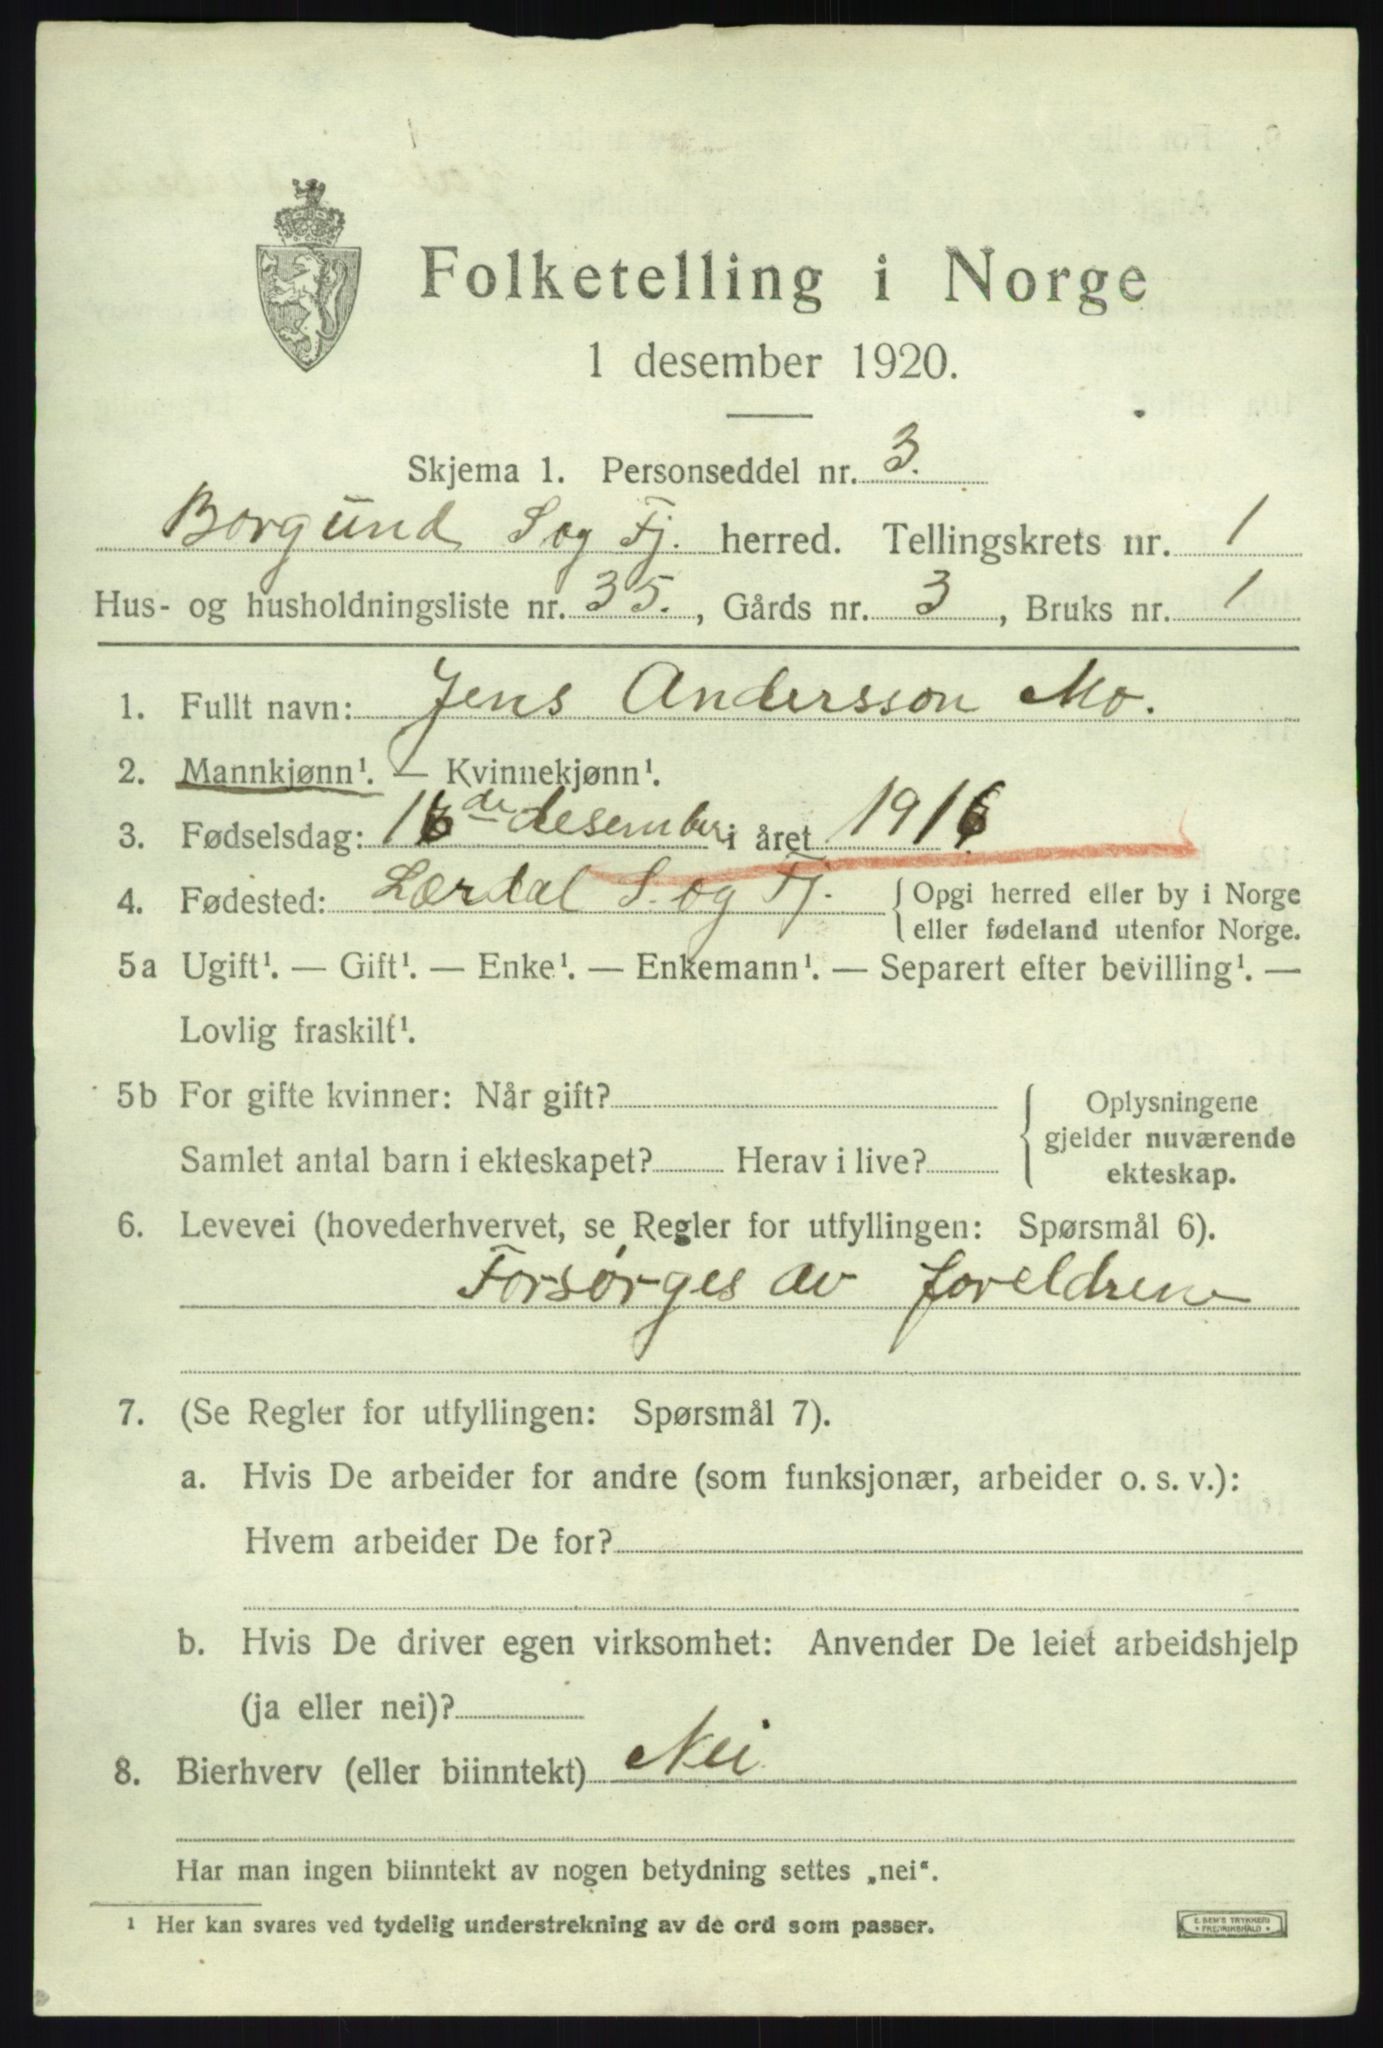 Folketelling i Norge
1 desember 1920.
Skjema 1. Personseddel nr. 3.
Borgund S og Fj. herred. Tellingskrets nr. 1
Hus- og husholdningsliste nr. 35., Gårds nr. 3, Bruks nr. 1
1. Fullt navn: Jens Andersson Mo.
2. Mannkjønn¹. — Kvinnekjønn¹.
3. Fødselsdag: 16de desember i året 1916
4. Fødested: Lærdal S. og Fj. { Opgi herred eller by i Norge
eller fødeland utenfor Norge.
5a Ugift¹. — Gift¹. — Enke¹. — Enkemann¹. — Separert efter bevilling¹. —
Lovlig fraskilt¹.
5b For gifte kvinner: Når gift? { Oplysningene
gjelder nuværende
Samlet antal barn i ekteskapet? Herav i live? ekteskap.
6. Levevei (hovederhvervet, se Regler for utfyllingen: Spørsmål 6).
Forsørges av foreldrene
7. (Se Regler for utfyllingen: Spørsmål 7).
a. Hvis De arbeider for andre (som funksjonær, arbeider o. s. v.):
Hvem arbeider De for?
b. Hvis De driver egen virksomhet: Anvender De leiet arbeidshjelp
(ja eller nei)?
8. Bierhverv (eller biinntekt) Nei
Har man ingen biinntekt av nogen betydning settes „nei“.
¹ Her kan svares ved tydelig understrekning av de ord som passer.
E. SEM'S TRYKKERI
* FREDRIKSHALD *